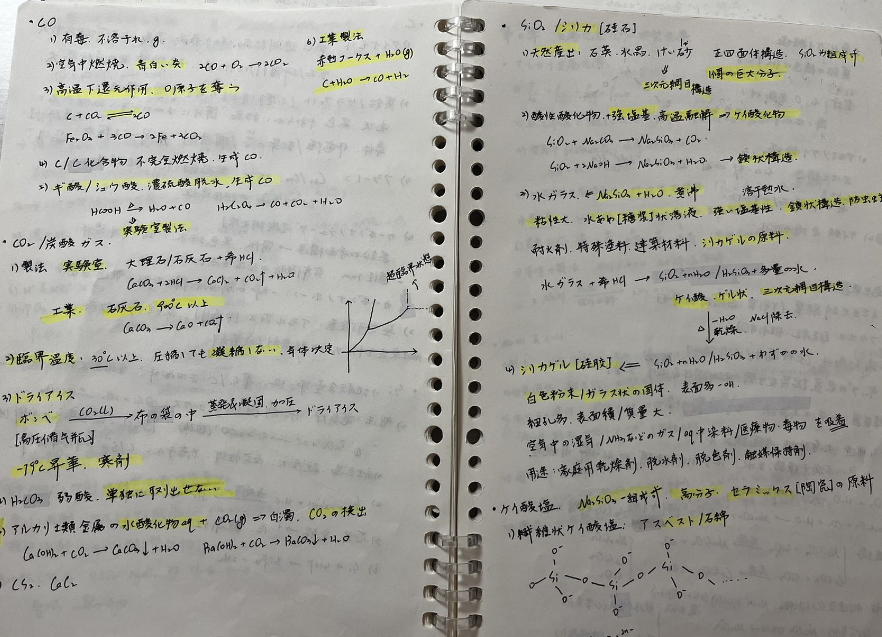 ・CO
1) 有毒. 不溶于水. g.
2) 空気中燃焼. 青白い炎 2CO + O₂ → 2CO₂
3) 高温下還元作用. O原子を奪う
C + CO₂ ⇌ 2CO
Fe₂O₃ + 3CO → 2Fe + 3CO₂
4) C/C化合物 不完全燃焼. 生成CO.
5) ギ酸/シュウ酸. 濃硫酸脱水. 生成CO
HCOOH → H₂O + CO H₂C₂O₄ → CO + CO₂ + H₂O
実験室製法
6) 工業製法
赤熱コークス + H₂O(g)
C + H₂O → CO + H₂
・CO₂ / 炭酸ガス.
1) 製法 実験室. 大理石/石灰石 + 希HCl.
CaCO₃ + 2HCl → CaCl₂ + CO₂↑ + H₂O
工業. 石灰石. 900℃以上
CaCO₃ → CaO + CO₂↑
超臨界状態
2) 臨界温度: 30℃以上. 圧縮しても凝縮しない.
3) ドライアイス
ボンベ CO₂(l) → 布の袋の中 凝固. 加圧 → ドライアイス
-79℃昇華. 寒剤
H₂CO₃ 弱酸. 単独に取り出せない.
アルカリ土類金属の水酸化物aq + CO₂(g) ⇒ 白濁. CO₂の検出
Ca(OH)₂ + CO₂ → CaCO₃↓ + H₂O Ba(OH)₂ + CO₂ → BaCO₃↓ + H₂O
CS₂. CaC₂
・SiO₂ / シリカ [硅石]
1) 天然産出: 石英. 水晶. けい砂 正四面体構造. SiO₂为组成式
1個の巨大分子.
三次元網目構造
2) 酸性酸化物. +強塩基. 高温融解 ⇒ ケイ酸化物
SiO₂ + Na₂CO₃ → Na₂SiO₃ + CO₂.
SiO₂ + 2NaOH → Na₂SiO₃ + H₂O → 鎖状構造.
3) 水ガラス. ← Na₂SiO₃ + H₂O. 煮沸 溶于熱水.
粘性大. 水あめ[糖漿]状溶液. 強い塩基性. 鎖状構造.
耐火剤. 特殊塗料. 建築材料. シリカゲルの原料.
水ガラス + 希HCl → SiO₂・nH₂O / H₂SiO₃ + 多量の水.
ケイ酸. ゲル状. 三次元網目構造.
-H₂O NaCl除去.
△ 乾燥
4) シリカゲル [硅胶] ⇐ SiO₂・nH₂O / H₂SiO₃ + わずかの水.
白色粉末/ガラス状の固体. 表面多-OH.
細孔多. 表面積/質量大.
空気中の湿気/NH₃などのガス/aq中染料/医療物. 毒物を吸着
用途: 家庭用乾燥剤. 脱水剤. 脱色剤. 触媒保持剤.
・ケイ酸塩. Na₂SiO₃-組成式. 高分子. セラミックス[陶瓷]の原料
1) 繊維状ケイ酸塩: アスベスト/石綿
O⁻ O⁻ O⁻
O⁻ Si O Si O Si O ……
O⁻ O⁻ O⁻